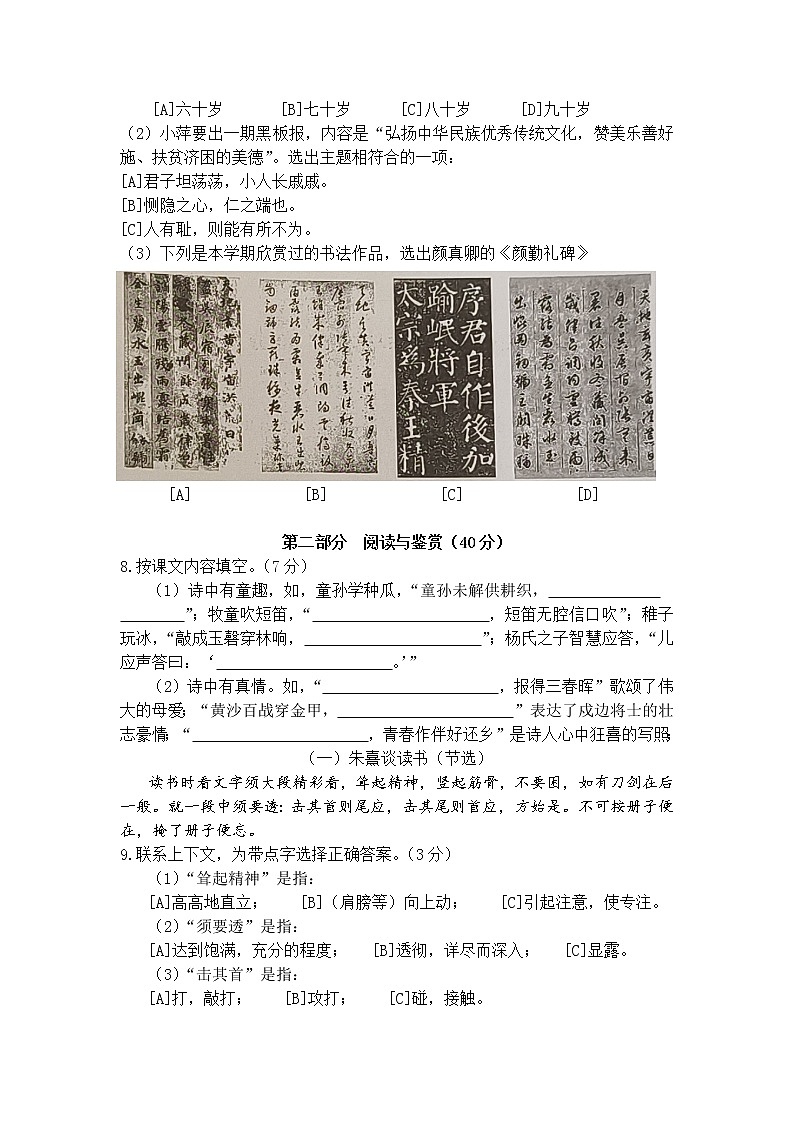 [A]六十岁 [B]七十岁 [C]八十岁 [D]九十岁
（2）小萍要出一期黑板报，内容是“弘扬中华民族优秀传统文化，赞美乐善好
施、扶贫济困的美德”。选出主题相符合的一项：
[A]君子坦荡荡，小人长戚戚。
[B]恻隐之心，仁之端也。
[C]人有耻，则能有所不为。
（3）下列是本学期欣赏过的书法作品，选出颜真卿的《颜勤礼碑》
序君自作後加
踰岷將軍
太宗為秦王精
[A] [B] [C] [D]
第二部分 阅读与鉴赏（40分）
8.按课文内容填空。（7分）
（1）诗中有童趣，如，童孙学种瓜，“童孙未解供耕织，
”；牧童吹短笛，“ ，短笛无腔信口吹”；稚子
玩冰，“敲成玉磬穿林响， ”；杨氏之子智慧应答，“儿
应声答曰：‘ 。’”
（2）诗中有真情。如，“ ，报得三春晖”歌颂了伟
大的母爱；“黄沙百战穿金甲， ”表达了戍边将士的壮
志豪情；“ ，青春作伴好还乡”是诗人心中狂喜的写照。
（一）朱熹谈读书（节选）
读书时看文字须大段精彩看，耸起精神，竖起筋骨，不要困，如有刀剑在后
一般。就一段中须要透：击其首则尾应，击其尾则首应，方始是。不可按册子便
在，掩了册子便忘。
9.联系上下文，为带点字选择正确答案。（3分）
（1）“耸起精神”是指：
[A]高高地直立； [B]（肩膀等）向上动； [C]引起注意，使专注。
（2）“须要透”是指：
[A]达到饱满，充分的程度； [B]透彻，详尽而深入； [C]显露。
（3）“击其首”是指：
[A]打，敲打； [B]攻打； [C]碰，接触。